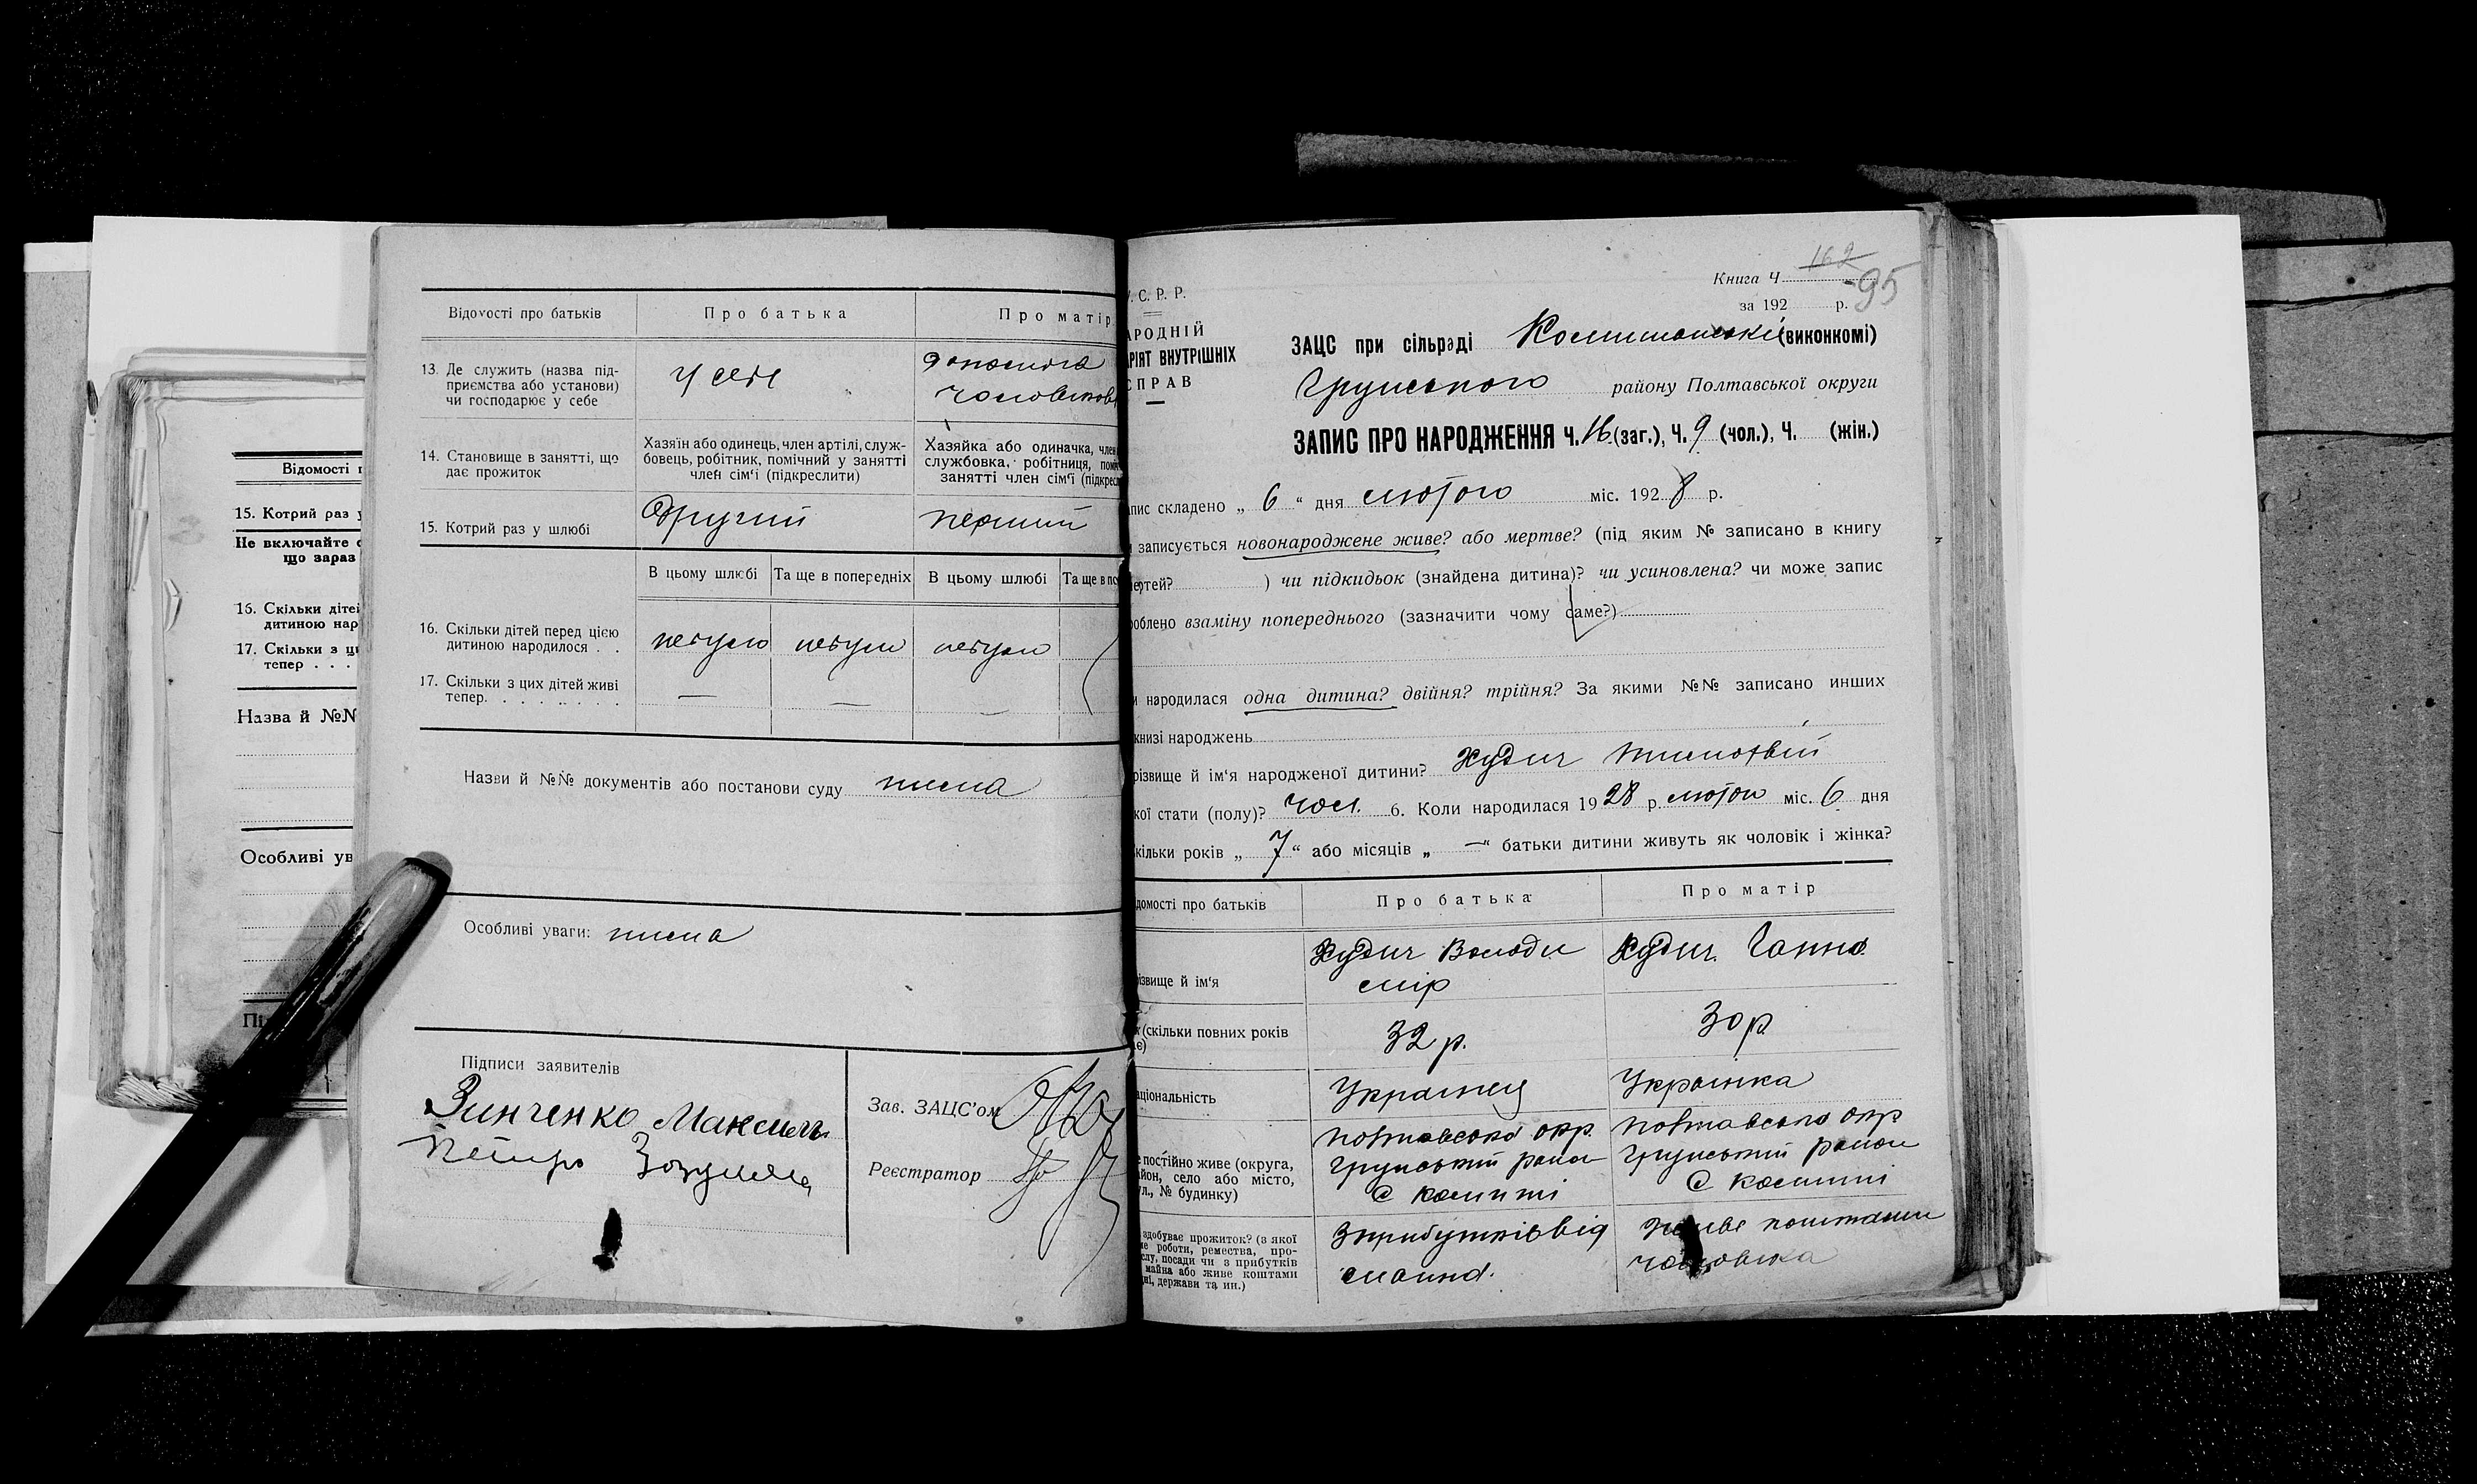 Відомості п
15. Котрий раз у
Не включайте
що зараз
16. Скільки діте
дитиною нар
17. Скільки з ци
тепер . . .
Назва й №№
Особливі ув
Відомості про батьків
Про батька
Про матір
13. Де служить (назва під-
приємства або установи)
чи господарює у себе
У себе
допомога
чоловікові
14. Становище в занятті, що
дає прожиток
Хазяїн або одинець, член артілі, служ-
бовець, робітник, помічний у занятті
член сім'ї (підкреслити)
Хазяйка або одиначка, член
службовка, робітниця, помі
занятті член сім'ї (підкресл
15. Котрий раз у шлюбі
Другий
перший
В цьому шлюбі
Та ще в попередніх
В цьому шлюбі
Та ще в по
16. Скільки дітей перед цією
дитиною народилося . .
небуло
небуло
небуло
17. Скільки з цих дітей живі
тепер. . . . . . . .
—
—
—
Назви й №№ документів або постанови суду нема
Особливі уваги: нема
Підписи заявителів
Зинченко Максимъ
Петро Зозуля
Зав. ЗАЦС'ом
Реєстратор
Книга Ч. 162
95
за 192 р.
У. С. Р. Р.
АРОДНІЙ
АРІЯТ ВНУТРІШНІХ
СПРАВ
ЗАЦС при сільраді Комишанські (виконкомі)
Грунського району Полтавської округи
ЗАПИС ПРО НАРОДЖЕННЯ Ч. 16 (заг.), Ч. 9 (чол.), Ч. (жін.)
апис складено „ 6 “ дня лютого міс. 1928 р.
и записується новонароджене живе? або мертве? (під яким № записано в книгу
мертей? ) чи підкидьок (знайдена дитина)? чи усиновлена? чи може запис
роблено взаміну попереднього (зазначити чому саме?)
и народилася одна дитина? двійня? трійня? За якими №№ записано инших
книзі народжень
різвище й ім'я народженої дитини? Худич Тимофвій
кої стати (полу)? чол. 6. Коли народилася 1928 р. лютого міс. 6 дня
кільки років „ 7 “ або місяців „ — “ батьки дитини живуть як чоловік і жінка?
домості про батьків
Про батька
Про матір
різвище й ім'я
Худич Володи
мір
Худич Ганна
(скільки повних років
є)
32 р.
30 р
аціональність
Українец
Українка
е постійно живе (округа,
айон, село або місто,
ул., № будинку)
Полтавська окр.
Грунський район
С Комиші
Полтавська окр
Грунський район
С Комиші
здобуває прожиток? (з якої
ме роботи, ремества, про-
слу, посади чи з прибутків
майна або живе коштами
дні, держави та ин.)
Зприбутків від
млина.
живе коштами
чоловіка